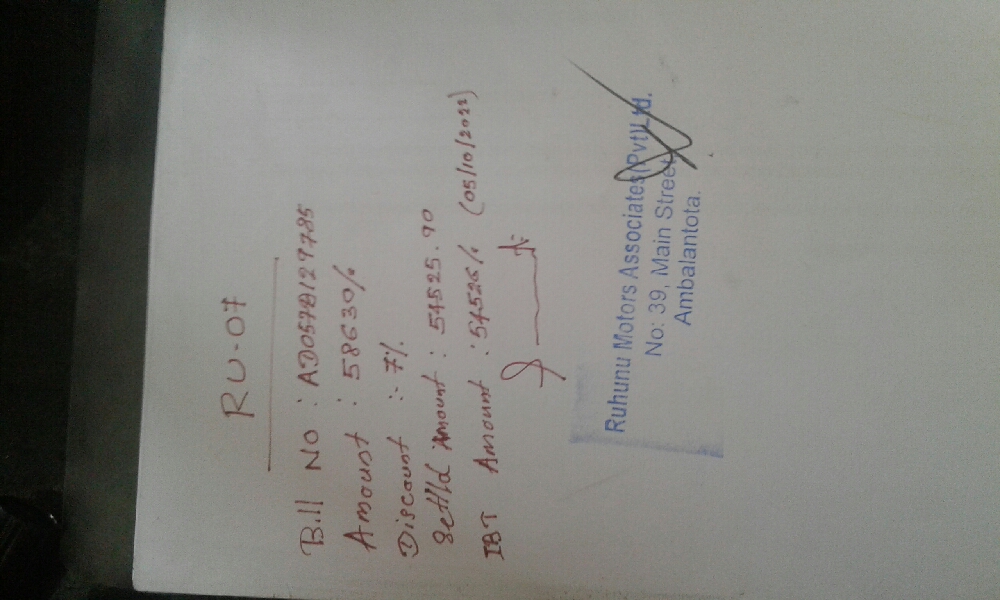 RU-07
Bill No : AD057B127785
Amount : 58630/.
Discount :- 7%.
Settld Amount : 54525.90
IBT Amount : 54526/. (05/10/2022)
Ruhunu Motors Associates (Pvt)Ltd.
No: 39, Main Street,
Ambalantota.